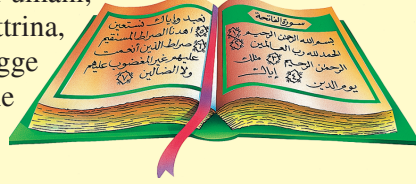 umani,
ttrina,
gge
سورة الفاتحة
بسم الله الرحمن الرحيم
الحمد لله رب العالمين
الرحمن الرحيم ملك
يوم الدين إياك
نعبد وإياك نستعين
اهدنا الصراط المستقيم
صراط الذين أنعمت
عليهم غير المغضوب عليهم
ولا الضالين